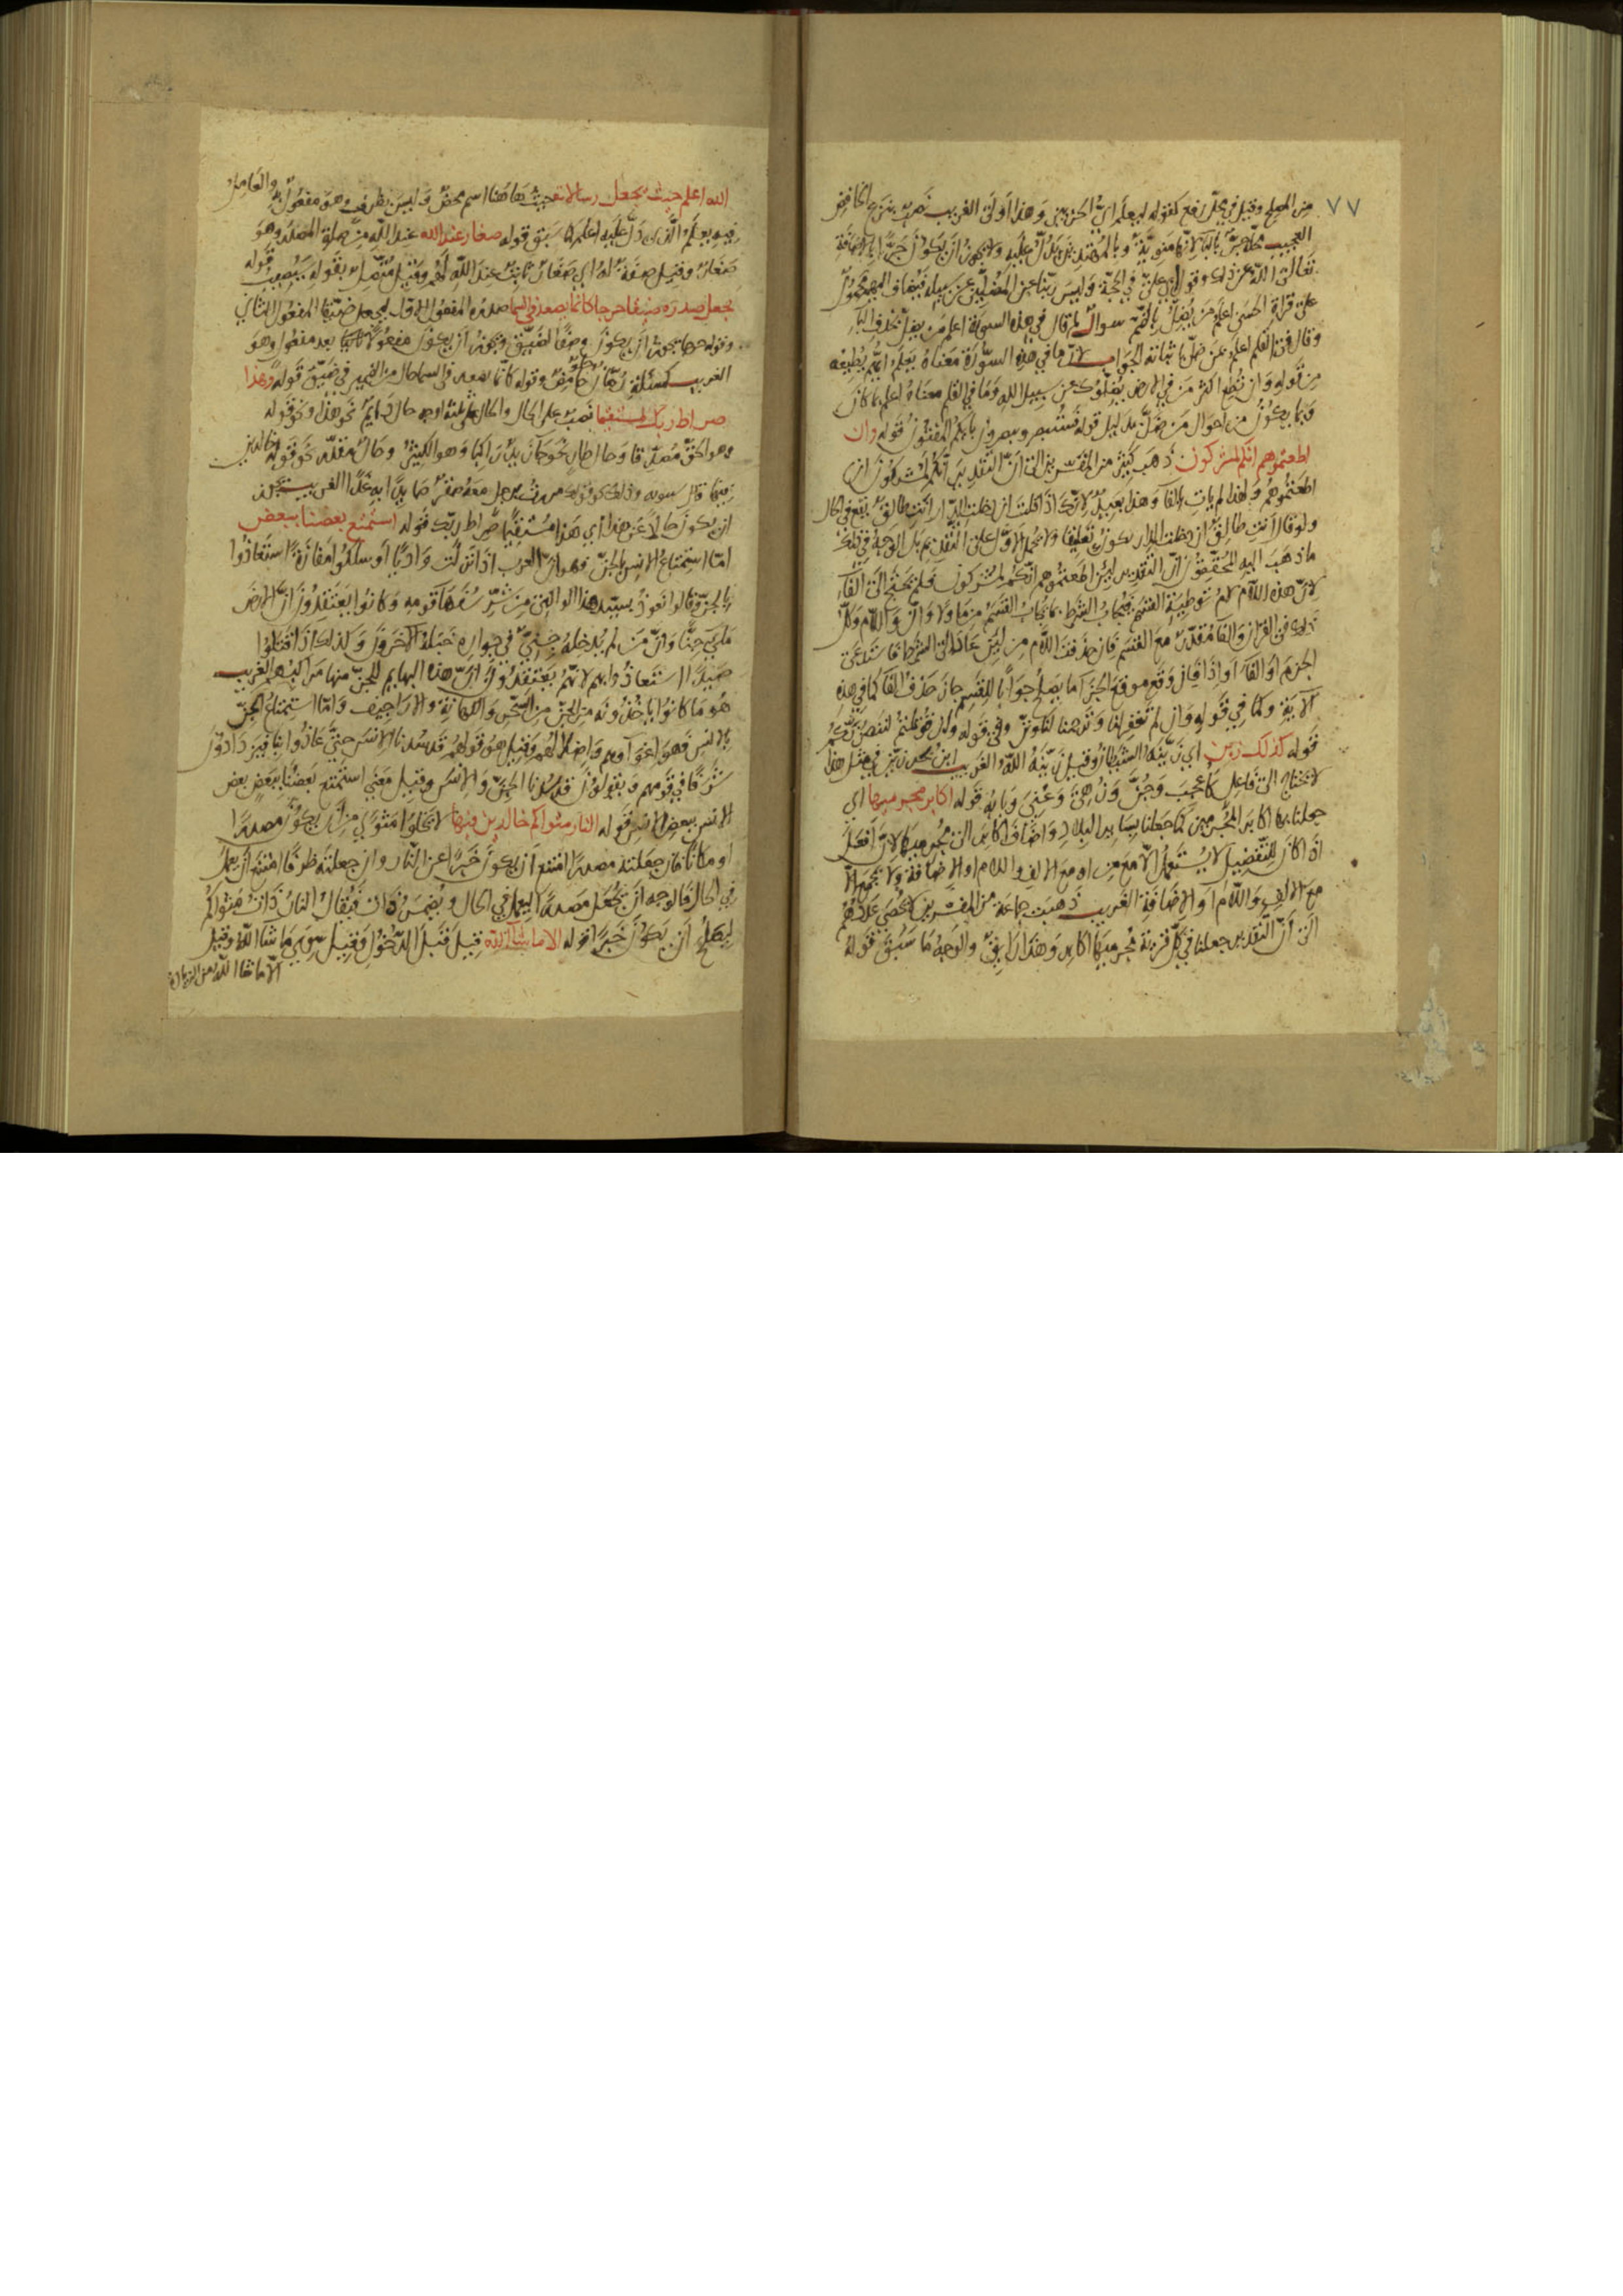 ٧٧
من المصلح وقيل في محل رفع كقوله لنعلم اي الحزبين وهذا اولى الغريب نصب بنزع الخافض
العجيب محله جر بالباء لانها منوية وبالمهتدين يدل عليه ولا يجوز ان يكون جرا بالاضافة
تعالى الله عن ذلك وقول ابي علي في الحجة وليس ربنا عن المضلين عن سبيله فيضاف اليهم محمول
على قراءة الحسن اعلم من يضل بالضم سوال لم قال في هذه السورة اعلم من يضل بحذف الباء
وقال في القلم اعلم بمن ضل باثباته الجواب لان ما في هذه السورة معناه يعلم ايهم يطيعه
من قوله وان تطع اكثر من في الارض يضلوك عن سبيل الله وما في القلم معناه اعلم بما كان
وبما يكون من احوال من ضل بدليل قوله فستبصر ويبصرون بايكم المفتون قوله وان
اطعتموهم انكم لمشركون ذهب كثير من المفسرين الى ان التقدير انكم لمشركون ان
اطعتموهم ولهذا لم يات بالفاء وهذا بعيد لانك اذا قلت ان دخلت الدار انت طالق يقع في الحال
ولو قال انت طالق ان دخلت الدار يكون تعليقا ولا يحمل الاول على التقديم بل الوجه في ذلك
ما ذهب اليه المحققون ان التقدير لئن اطعتموهم انكم لمشركون فلم يحتج الى الفاء
لان هذه اللام لام توطية القسم فيجاب الشرط بما يجاب القسم من ما ولا وان واللام وكل
ذلك في القران والفاء مقدر مع القسم فان حذفت اللام من لئن عاد الى الشرط فاستدعى
الجزم او الفاء او اذا فان وقع موقع الجزاء ما يصلح جوابا للقسم جاز حذف الفاء كما في هذه
الاية وكما في قوله وان لم تغفر لنا وترحمنا لنكونن وفي قوله وان قوتلتم لننصرنكم
قوله كذلك زين اي زينه الشيطان وقيل زينه الله الغريب ابن بحر زين في مثل هذا
لا يحتاج الى فاعل كاعجب وجن وزهي وعني وبابه قوله اكابر مجرميها اي
جعلنا بها اكابر المجرمين كما جعلنا بساير البلاد واضاف اكابر الى مجرميها لان افعل
اذا كان للتفضيل لا يستعمل الا مع من او مع الالف واللام او الاضافة ولا يجمع الا
مع الالف واللام او الاضافة الغريب ذهبت جماعة من المفسرين لا يحصى عددهم
الى ان التقدير جعلنا في كل قرية مجرميها اكابر وهذا زايف والوجه ما سبق قوله
الله اعلم حيث يجعل رسالاته حيث هاهنا اسم محض وليس بظرف وهو مفعول به والعامل
فيه يعلم الذي دل عليه اعلم لما سبق قوله صغار عند الله عند الله من صلة المصدر وهو
صغار وقيل صفة له اي صغار ثابت عند الله لهم وقيل متصل بقوله سيصيب قوله
يجعل صدره ضيقا حرجا كانما يصعد في السماء صدره المفعول الاول ليجعل ضيقا المفعول الثاني
وقوله حرجا يجوز ان يكون وصفا لضيق ويجوز ان يكون مفعولا ثانيا بعد مفعول وهو
الغريب كمسئلة رمان حلو حامض وقوله كانما يصعد في السماء حال من الضمير في ضيق قوله وهذا
صراط ربك مستقيما نصب على الحال والحال على ثلثة اوجه حال دايم نحو هذا ونحو قوله
وهو الحق مصدقا وحال طار نحو جاء زيد راكبا وهو الكثير وحال مقدر نحو قوله خالدين
فيها قال سيبويه وذلك كقولك مررت برجل معه صقر صايدا به غدا الغريب يجوز
ان يكون حالا عن هذا اي هذا مستقيما صراط ربك قوله استمتع بعضنا ببعض
اما استمتاع الانس بالجن فهو ان العرب اذا نزلت واديا او سلكوا مفازة استعاذوا
بالجن وقالوا نعوذ بسيد هذا الوادي من شر سفهاء قومه وكانوا يعتقدون ان الارض
ملئ جنا وان من لم يدخله جني في جواره خبله الاخرون وكذلك اذا قتلوا
صيدا استعاذوا بهم لانهم يعتقدون ان هذه البهايم للجن منها مراكبهم الغريب
هو ما كانوا ياخذونه من الجن من السحر والكهانة والاراجيف واما استمتاع الجن
بالانس فهو اغواوهم واضلالهم وقيل هو قولهم قد سدنا الانس حتى عاذوا بنا فيزدادون
شرفا في قومهم ويقولون قد سدنا الجن والانس وقيل معنى استمتع بعضنا ببعض بعض
الانس ببعض الانس قوله النار مثواكم خالدين فيها لا تخلوا مثوى من ان يكون مصدرا
او مكانا فان جعلته مصدرا امتنع ان يكون خبرا عن النار وان جعلته ظرفا امتنع ان يعمل
في الحال فالوجه ان يجعل مصدرا ليعمل في الحال ويضمر ذات فيقال النار ذات مثواكم
ليصلح ان يكون خبرا قوله الا ما شاء الله قيل قبل الدخول وقيل سوى ما شاء الله وقيل
الا ما شاء الله من الزيادة